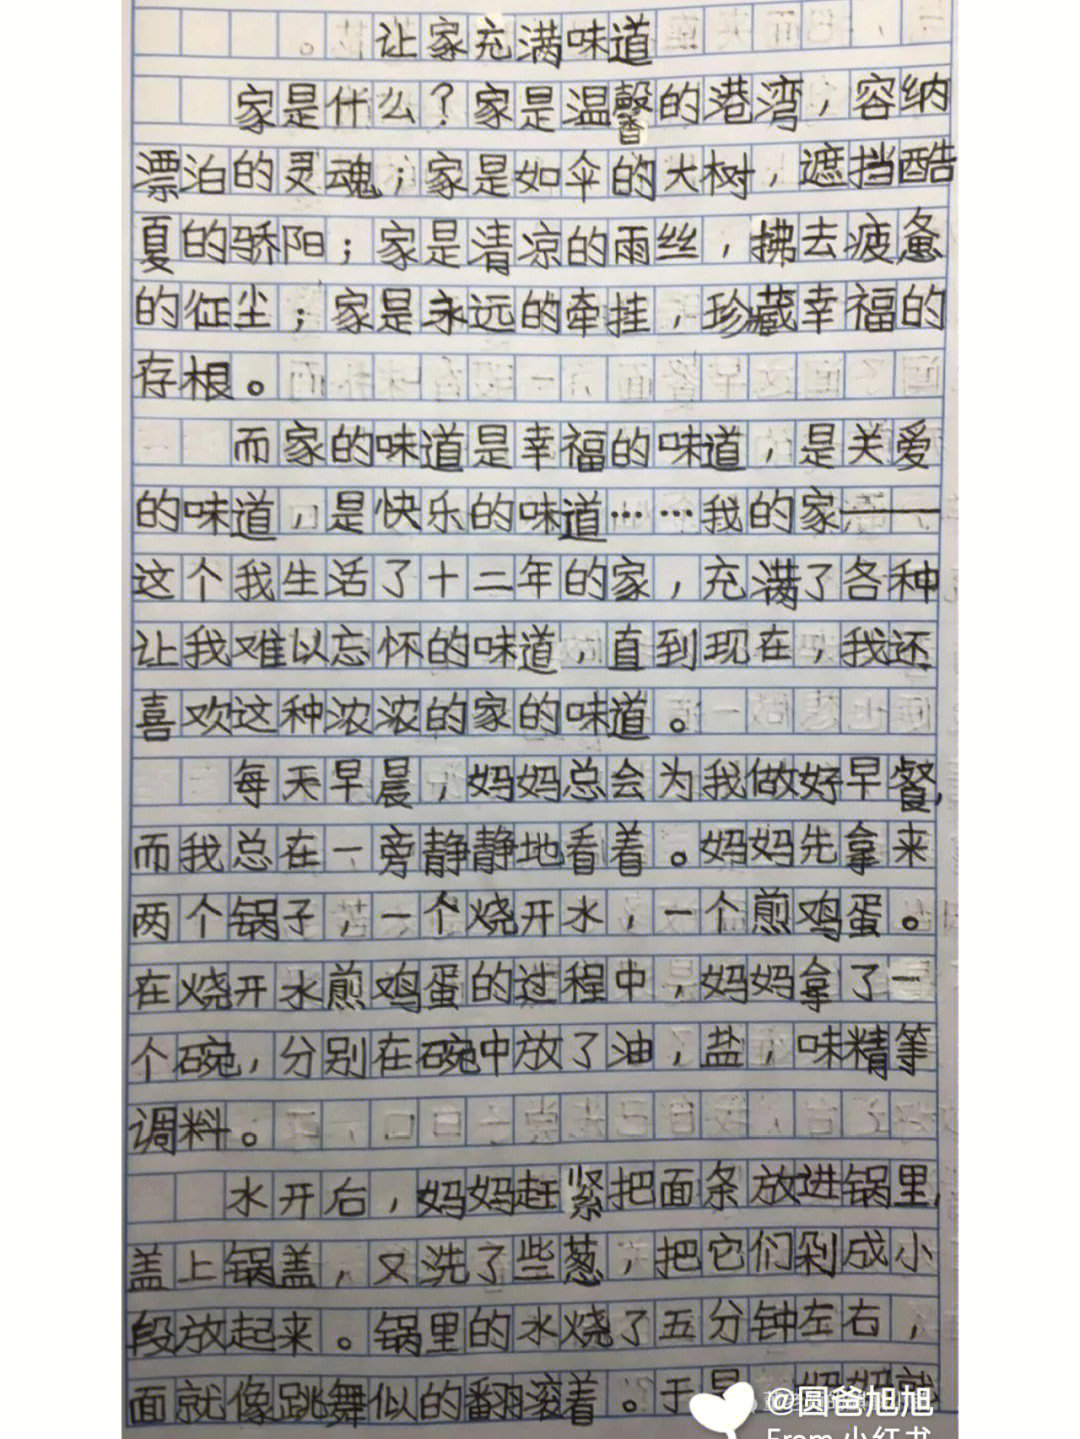 让家充满味道
家是什么？家是温馨的港湾，容纳
漂泊的灵魂；家是如伞的大树，遮挡酷
夏的骄阳；家是清凉的雨丝，拂去疲惫
的征尘；家是永远的牵挂，珍藏幸福的
存根。
而家的味道是幸福的味道，是关爱
的味道，是快乐的味道……我的家——
这个我生活了十二年的家，充满了各种
让我难以忘怀的味道，直到现在，我还
喜欢这种浓浓的家的味道。
每天早晨，妈妈总会为我做好早餐，
而我总在一旁静静地看着。妈妈先拿来
两个锅子，一个烧开水，一个煎鸡蛋。
在烧开水煎鸡蛋的过程中，妈妈拿了一
个碗，分别在碗中放了油，盐，味精等
调料。
水开后，妈妈赶紧把面条放进锅里，
盖上锅盖，又洗了些葱，把它们剁成小
段放起来。锅里的水烧了五分钟左右，
面就像跳舞似的翻滚着。于是，妈妈就
@圆爸旭旭
From 小红书